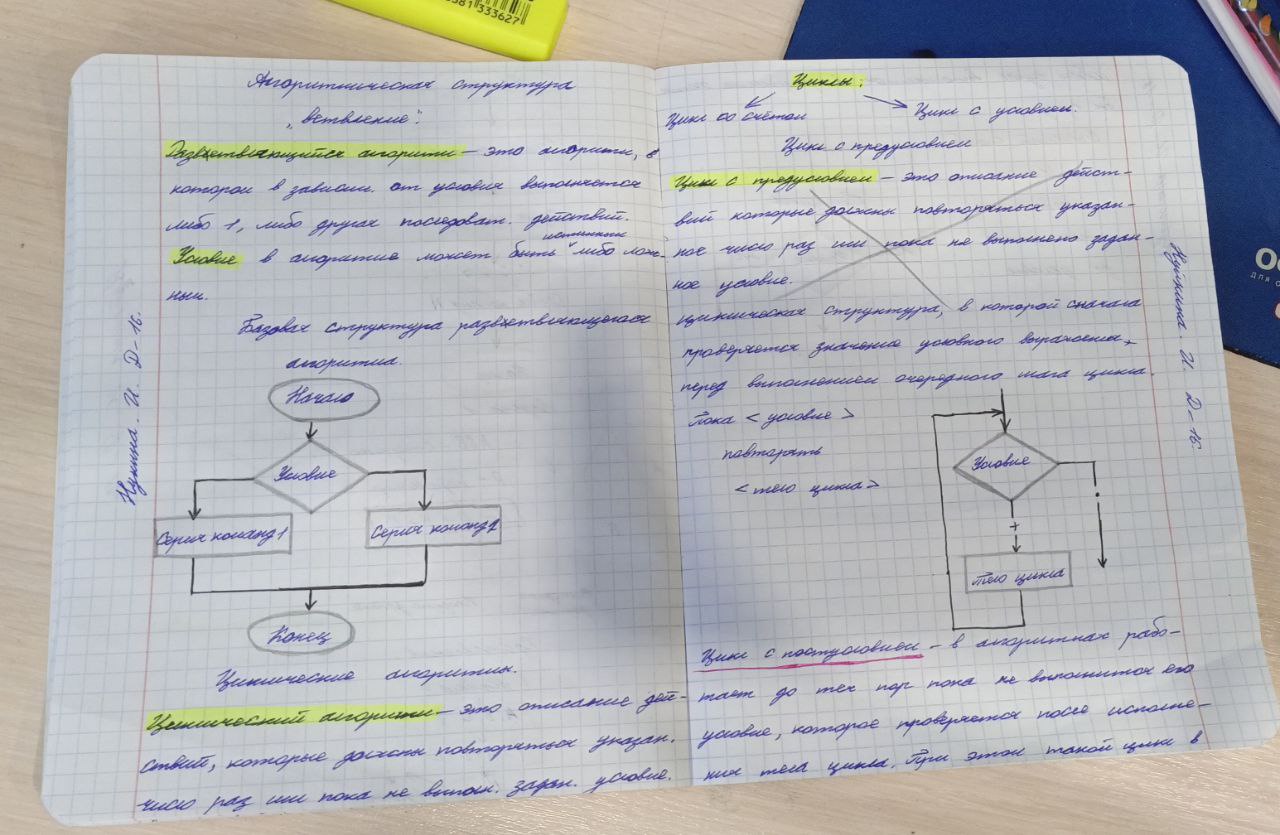 381 333627
Алгоритмическая структура
„ветвление".
Разветвляющийся алгоритм — это алгоритм, в
котором в зависим. от условия выполняется
либо 1, либо другая последоват. действий.
истинным
Условие в алгоритме может быть ˅ либо лож-
ным.
Базовая структура разветвляющегося
алгоритма.
Начало
Условие
Серия команд 1
Серия команд 2
Конец
Циклические алгоритмы.
Циклический алгоритм — это описание дей-
ствий, которые должны повторяться указан.
число раз или пока не выполн. задан. условие.
И. Д-16.
Циклы:
Цикл со счётом
Цикл с условием.
Цикл с предусловием
Цикл с предусловием — это описание дейст-
вий которые должны повторяться указан-
ное число раз или пока не выполнено задан-
ное условие.
циклическая структура, в которой сначала
проверяется значение условного выражения,
перед выполнением очередного шага цикла.
Пока < условие >
повторять
< тело цикла >
Условие
+
-
Тело цикла
Цикл с постусловием — в алгоритмах рабо-
тает до тех пор пока не выполнится его
условие, которое проверяется после исполне-
ния тела цикла. При этом такой цикл в
И Д-16